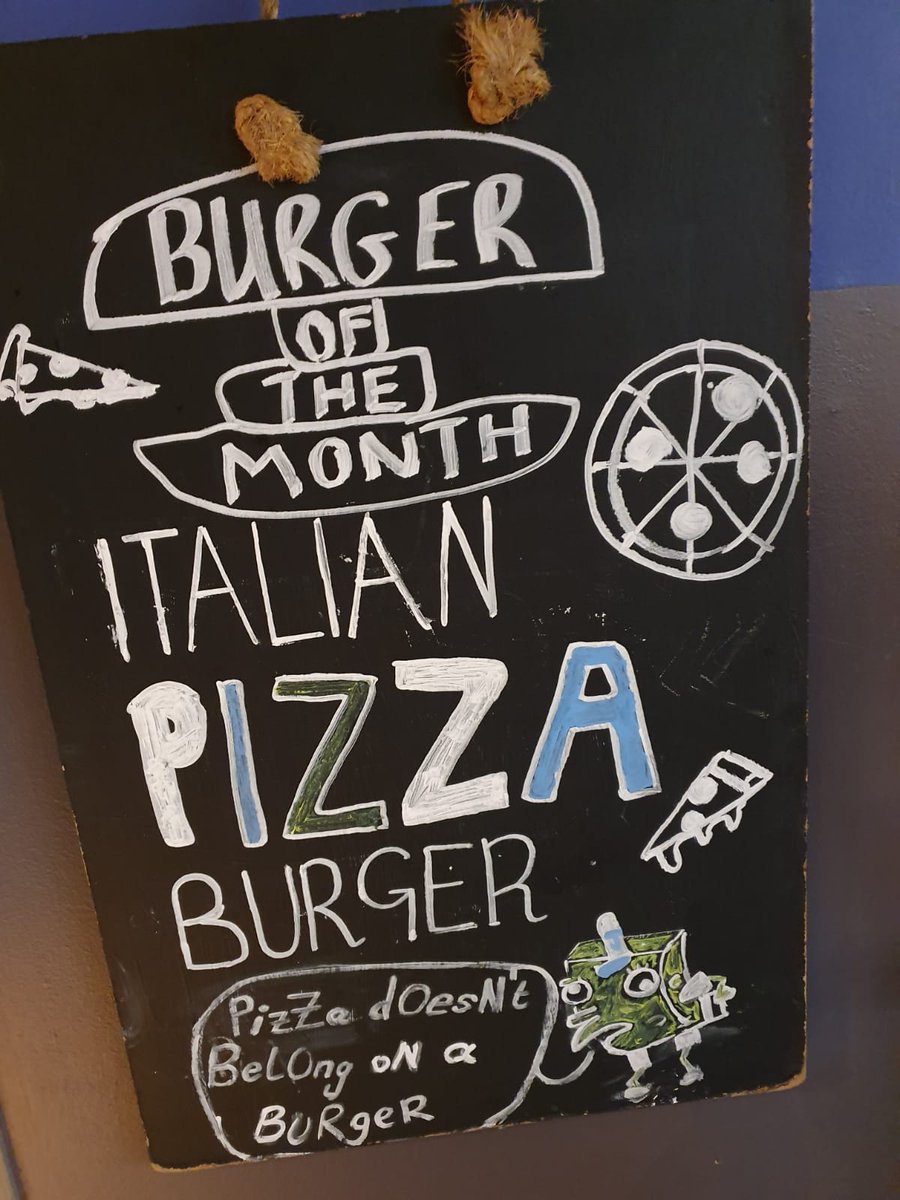 BURGER
OF
THE
MONTH
ITALIAN
PIZZA
BURGER
PizZa dOesN't
BelOng oN a
BURgeR